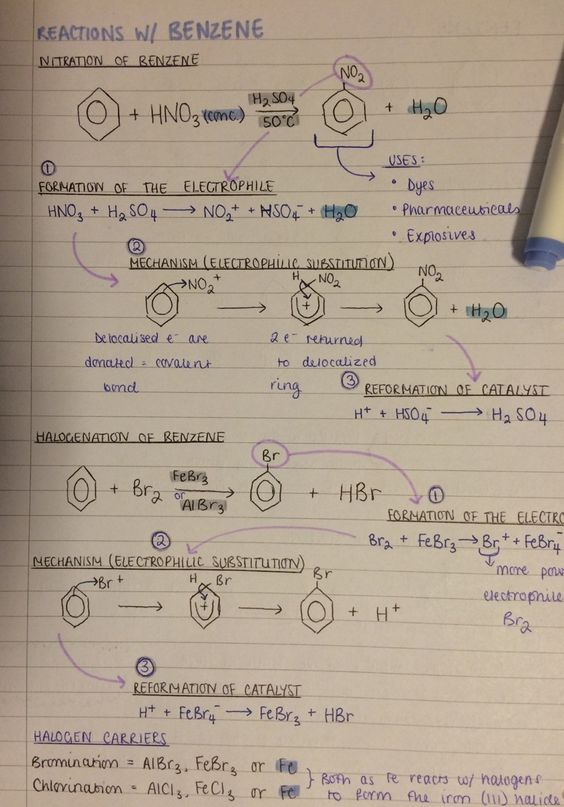 REACTIONS W/ BENZENE
NITRATION OF BENZENE
+ HNO₃ (conc.) H₂SO₄ 50°C → NO₂ + H₂O
USES:
• Dyes
• Pharmaceuticals
• Explosives
① FORMATION OF THE ELECTROPHILE
HNO₃ + H₂SO₄ → NO₂⁺ + HSO₄⁻ + H₂O
② MECHANISM (ELECTROPHILIC SUBSTITUTION)
→NO₂⁺ → H NO₂ + → NO₂ + H₂O
Delocalised e⁻ are
donated = covalent
bond
2e⁻ returned
to delocalized
ring
③ REFORMATION OF CATALYST
H⁺ + HSO₄⁻ → H₂SO₄
HALOGENATION OF BENZENE
+ Br₂ FeBr₃ or AlBr₃ → Br + HBr
① FORMATION OF THE ELECTRO
Br₂ + FeBr₃ → Br⁺ + FeBr₄⁻
more pow
electrophile
Br₂
② MECHANISM (ELECTROPHILIC SUBSTITUTION)
→Br⁺ → H Br + → Br + H⁺
③ REFORMATION OF CATALYST
H⁺ + FeBr₄⁻ → FeBr₃ + HBr
HALOGEN CARRIERS
Bromination = AlBr₃, FeBr₃ or Fe
Chlorination = AlCl₃, FeCl₃ or Fe
} Both as Fe reacts w/ halogens
to form the iron (III) halide